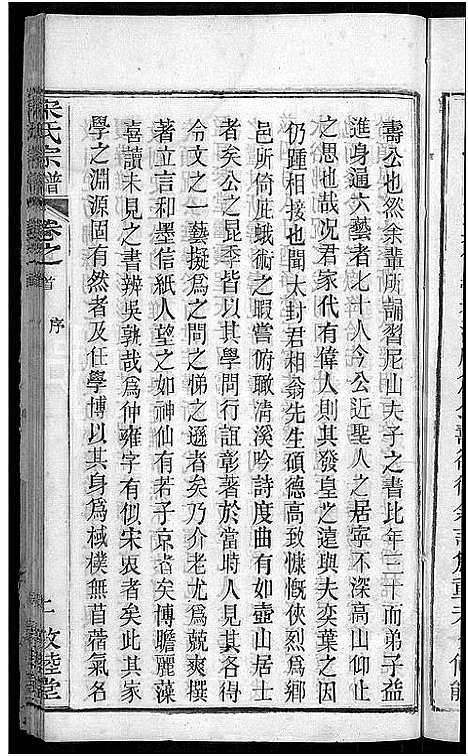 壽公也然余輩所誦習尼山夫子之書比年三十而弟子益
進身通六藝者七十人今公近聖人之居寧不深高山仰止
之思也哉况君家代有偉人則其發皇之遠與夫奕葉之因
仍踵相接也聞太封君相翁先生碩德高致慷慨俠烈爲鄉
邑所倚庇蛾術之暇嘗俯瞰清溪吟詩度曲有如壺山居士
者矣公之昆季皆以其學問行誼彰著於當時人見其各得
令文之一藝擬爲之問之悌之遜者矣乃介老尤爲競爽撰
著立言和墨信紙人望之如神仙有若子京者矣博瞻麗藻
喜讀未見之書辨吳敦哉爲仲雍字有似宋衷者矣此其家
學之淵源固有然者及仕學博以其身爲棫樸無苜蓿氣名
宋氏宗譜
卷之首
序
敦睦堂